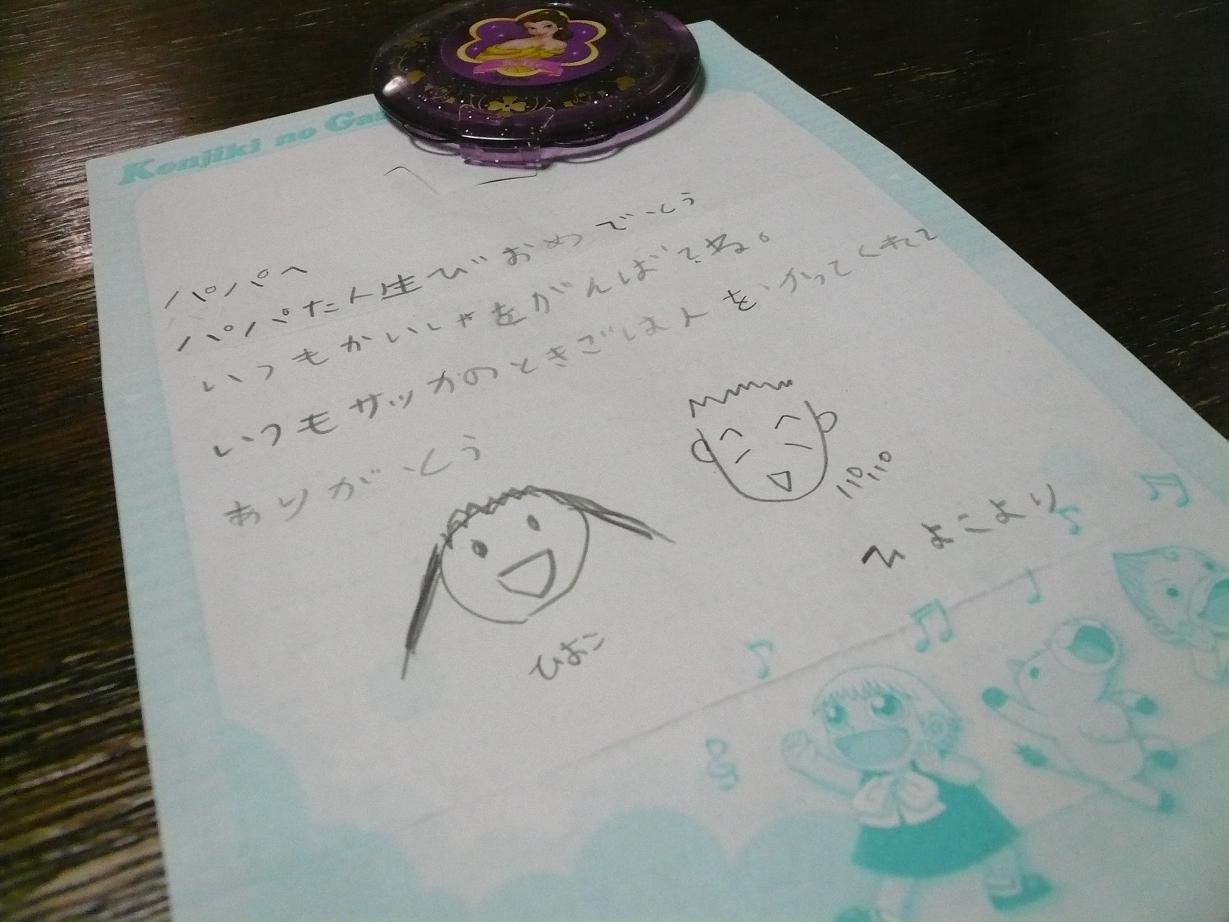 Konjiki no Ga
パパへ
パパた人生びおめでとう
いつもかいしゃをがんばてね。
いつもサッカのときごはんをかってくれて
ありがとう
パパ
ひよこより
ひよこ